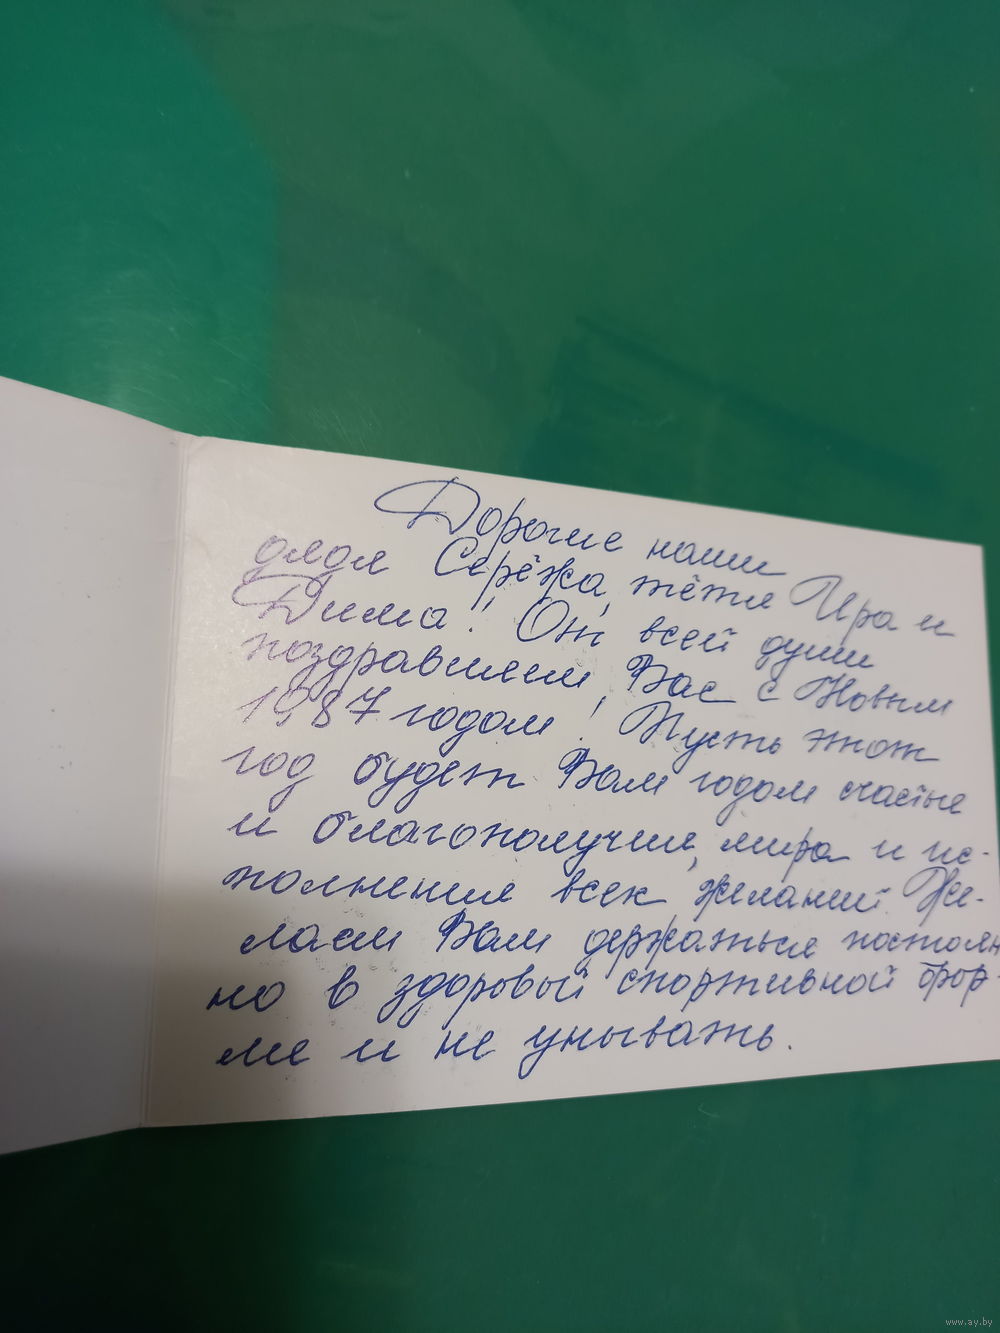 Дорогие наши
дядя Серёжа, тётя Ира и
Дима! От всей души
поздравляем Вас с Новым
1987 годом! Пусть этот
год будет Вам годом счастья
и благополучия, мира и ис-
полнения всех желаний. Же-
лаем Вам держаться постоян
но в здоровой спортивной фор-
ме и не унывать.
www.ay.by